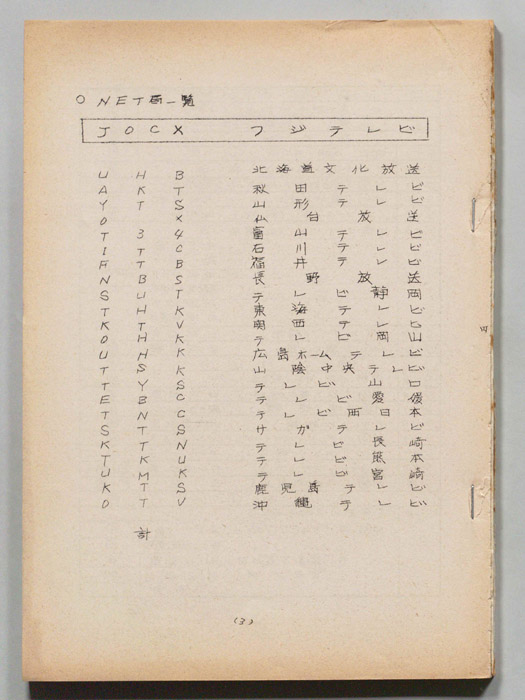 〇 NET局一覧
JOCX フジテレビ
UHB 北海道文化放送
AKT 秋田テレビ
YTS 山形テレビ
OX 仙台放送
T34 富山テレビ
ITC 石川テレビ
FTB 福井テレビ
NBS 長野放送
SUT テレビ静岡
THK 東海テレビ
KTV 関西テレビ
OHK テレビ岡山
UHK 広島ホームテレビ
TSK 山陰中央テレビ
TYS テレビ山口
EBC テレビ愛媛
TNC テレビ西日本
STS サガテレビ
KTN テレビ長崎
TKU テレビ熊本
UMK テレビ宮崎
KTS 鹿児島テレビ
OTV 沖縄テレビ
計
(3)